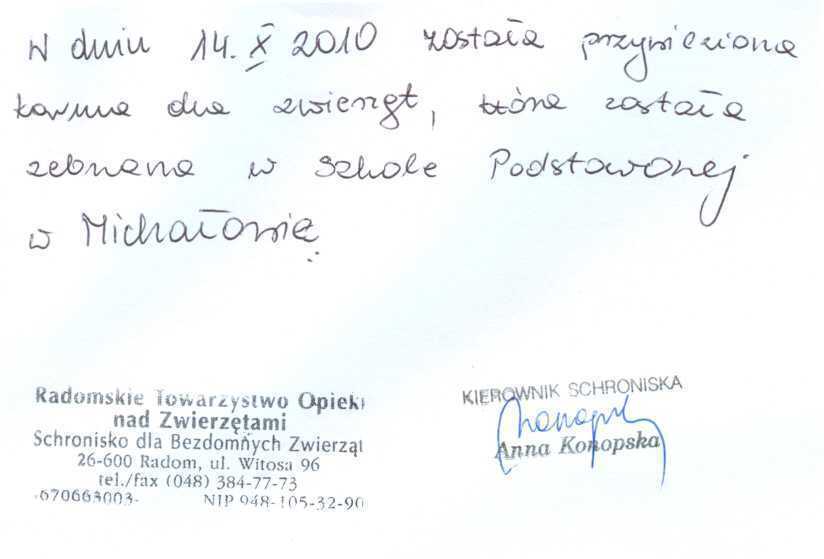 W dniu 14.X 2010 została przywieziona
karma dla zwierząt, która została
zebrana w Szkole Podstawowej
w Michałowie
Radomskie Towarzystwo Opieki
nad Zwierzętami
Schronisko dla Bezdomnych Zwierząt
26-600 Radom, ul. Witosa 96
tel./fax (048) 384-77-73
670663003 NIP 948-105-32-90
KIEROWNIK SCHRONISKA
Anna Konopska